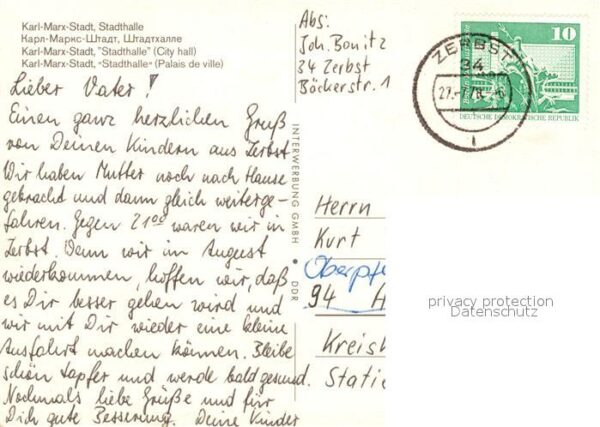 Karl-Marx-Stadt, Stadthalle
Карл-Маркс-Штадт, Штадтхалле
Karl-Marx-Stadt, "Stadthalle" (City hall)
Karl-Marx-Stadt, «Stadthalle» (Palais de ville)
Lieber Vater!
Einen ganz herzlichen Gruß
von Deinen Kindern aus Zerbst
Wir haben Mutter noch nach Hause
gebracht und dann gleich weiterge-
fahren. Gegen 21⁰⁰ waren wir in
Zerbst. Wenn wir im August
wiederkommen, hoffen wir, daß
es Dir besser gehen wird und
wir mit Dir wieder eine kleine
Ausfahrt machen können. Bleibe
schön tapfer und werde bald gesund.
Nochmals liebe Grüße und für
Dich gute Besserung. Deine Kinder
INTERWERBUNG GMBH • DDR
Abs:
Joh. Bonitz
34 Zerbst
Böckerstr. 1
10
DEUTSCHE DEMOKRATISCHE REPUBLIK
ZERBST
34
Herrn
Kurt
94
privacy protection
Datenschutz